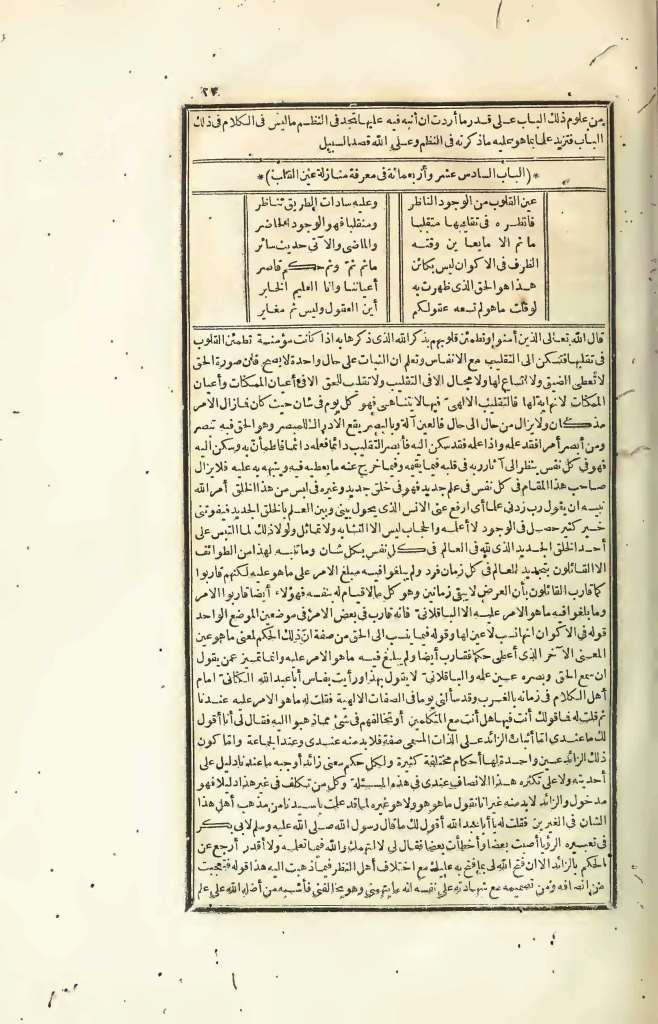 ٢٣
من علوم ذلك الباب على قدر ما أردت ان أنبه فيه عليها تجد فى النظم ما ليس فى الكلام فى ذلك
الباب فتزيد علما بما هو عليه ما ذكرته فى النظم وعلى الله قصد السبيل
* (الباب السادس عشر وأربعمائة فى معرفة منازلة عين القلب) *
عين القلوب من الوجود الناظر وعليه سادات الطريق تناظر
فانظره فى تقليبها متقلبا ومنقلبا فهو الوجود الحاضر
ما ثم الا ما يعاين وقته والماضى والآتى حديث سائر
الظرف فى الاكوان ليس بكائن ما ثم ثم وثم حكم قاصر
هذا هو الحق الذى ظهرت به أعياننا وأنا العليم الخابر
لوقات ما هو لم تسعه عقولكم أين العقول وليس ثم مغاير
قال الله تعالى الذين آمنوا وتطمئن قلوبهم بذكر الله الذى ذكرها به اذا كانت مؤمنة تطمئن القلوب
فى تقليبها فتسكن الى التقليب مع الانفاس وتعلم ان الثبات على حال واحدة لا يصح فان صورة الحق
لا تعطى الضيق ولا اتساع لها ولا مجال الا فى التقليب ولا تقليب للحق الا فى أعيان الممكنات وأعيان
الممكنات لا نهاية لها فالتقليب الالهى فيها لا يتناهى فهو كل يوم فى شان حيث كان فما زال الامر
مذ كان ولا يزال من حال الى حال فالعين آلة وبالبصر يقع الادراك للمبصر وهو الحق فبه تبصر
ومن أبصر أمرا فقد علمه واذا علمه فقد سكن اليه فأبصر التقليب دائما فعلمه دائما فاطمأن به وسكن اليه
فهو فى كل نفس ينظر الى آثار ربه فى قلبه فيما يقيمه وفيما خرج عنه ما يعطيه فيه وينبهه به عليه فلا يزال
صاحب هذا المقام فى كل نفس فى علم جديد فهو فى خلق جديد وغيره فى لبس من هذا الخلق أمر الله
نبيه ان يقول رب زدنى علما أى ارفع عنى اللبس الذى يحول بينى وبين العلم بالخلق الجديد فيفوتنى
خير كثير حصل فى الوجود لا أعلمه والحجاب ليس الا التشابه والتماثل ولولا ذلك لما التبس على
أحد الخلق الجديد الذى لله فى العالم فى كل نفس بكل شان وما تنبه لهذا من الطوائف
الا القائلون بتجديد العالم فى كل زمان فرد ولم يبلغوا فيه مبلغ الامر على ما هو عليه لكنهم قاربوا
كما قارب القائلون بأن العرض لا يبقى زمانين وهو كل ما لا قيام له بنفسه فهؤلاء أيضا قاربوا الامر
وما بلغوا فيه ما هو الامر عليه الا الباقلانى فانه قارب فى بعض الامر فى موضعين الموضع الواحد
قوله فى الاكوان انها نسب لا عين لها وقوله فيما ينسب الى الحق من صفة ان ذلك الحكم لمعنى ما هو عين
المعنى الآخر الذى أعطى حكما فقارب أيضا ولم يبلغ فيه ما هو الامر عليه وانما تميز عمن يقول
ان سمع الحق وبصره عين علمه والباقلانى لا يقول بهذا ورأيت بفاس أبا عبد الله الكتانى امام
أهل الكلام فى زمانه بالمغرب وقد سألنى يوما فى الصفات الالهية فقلت له ما هو الامر عليه عندنا
ثم قلت له فما قولك أنت فيها هل أنت مع المتكلمين أو تخالفهم فى شئ مما ذهبوا اليه فقال لى أنا أقول
لك ما عندى اما اثبات الزائد على الذات المسمى صفة فلا بد منه عندى وعند الجماعة واما كون
ذلك الزائد عين واحدة لها أحكام مختلفة كثيرة ولكل حكم معنى زائد أوجبه ما عندنا دليل على
أحديته ولا على تكثره هذا الانصاف عندى فى هذه المسئلة وكل من تكلف فى غير هذا دليلا فهو
مدخول والزائد لا بد منه غير انا نقول ما هو هو ولا هو غيره لما قد علمت يا سيدنا من مذهب أهل هذا
الشان فى الغيرين فقلت له يا أبا عبد الله أقول لك ما قال رسول الله صلى الله عليه وسلم لابى بكر
فى تعبيره الرؤيا أصبت بعضا وأخطأت بعضا فقال لى لا اتهمك والله فيما تعلمه ولا أقدر أرجع عن
الحكم بالزائد الا ان فتح الله لى بما فتح به عليك مع اختلاف أهل النظر فيما ذهبت اليه هذا قوله فتعجبت
من انصافه ومن تصميمه مع شهادته على نفسه انه ما يتهمنى وهو يخالفنى فأشبه من أضله الله على علم